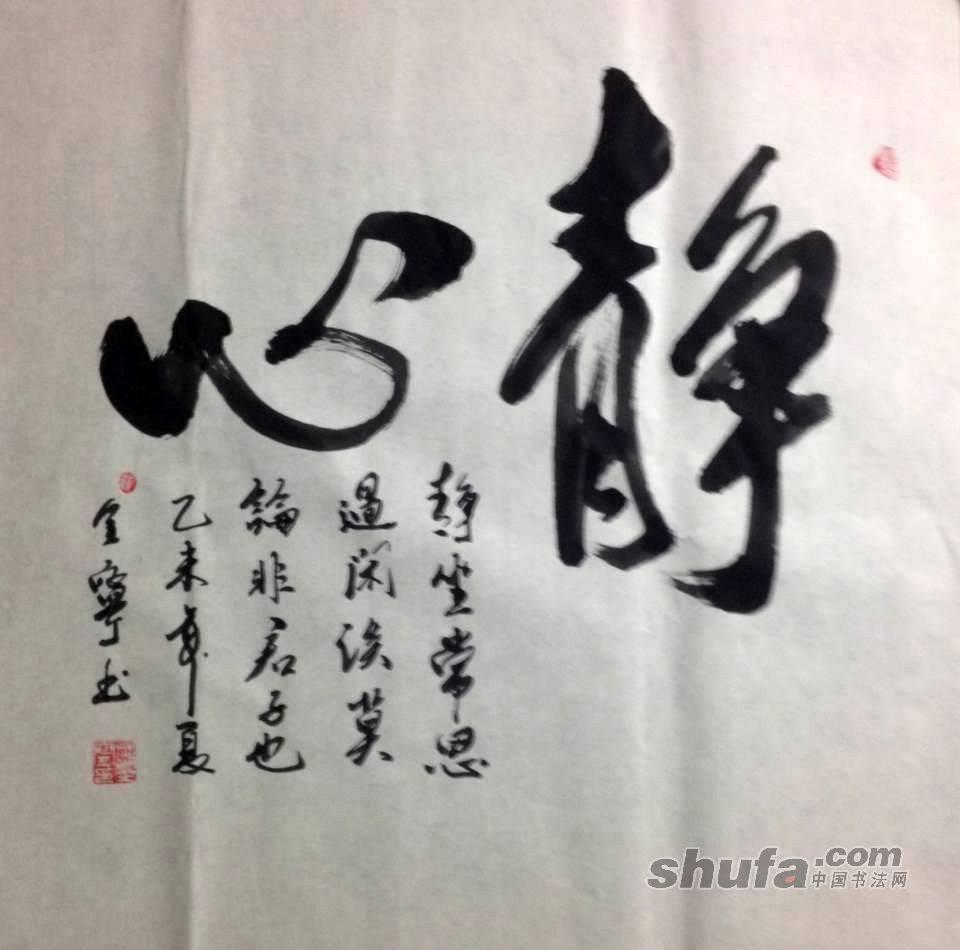 静心
静坐常思
過闲谈莫
論非君子也
乙未年夏
金寧书
shufa.com
中国书法网